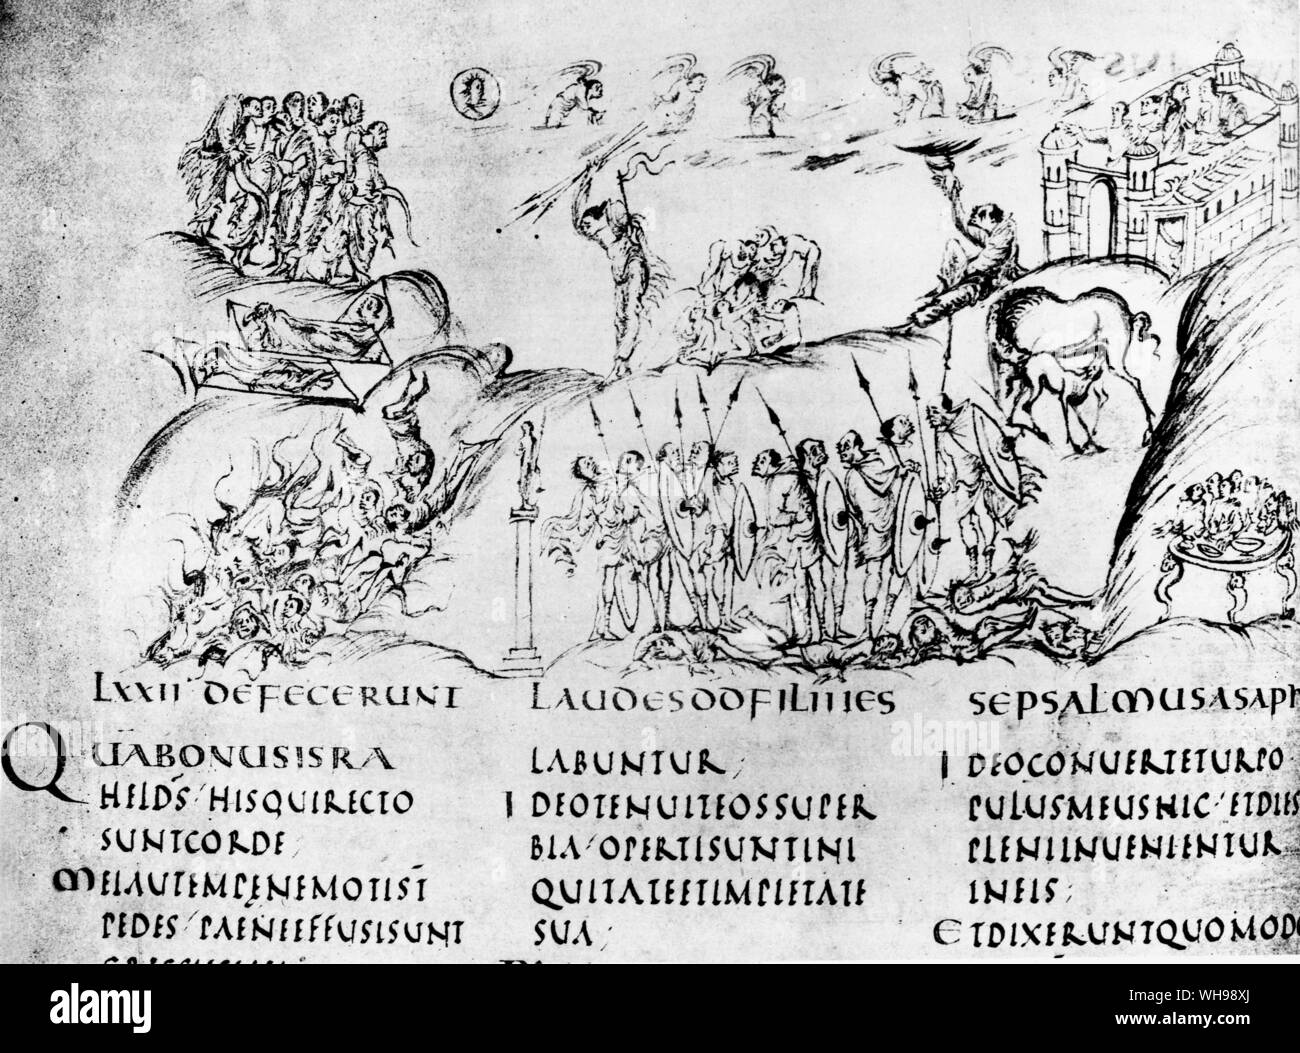 LXXII DEFECERUNT LAUDESDDFILIIIES SEPSALMUSASAPH
QUABONUSISRA
HELDS HISQUIRECTO
SUNTCORDE
MEIAUTEMPENEMOTIST
PEDES PAENEEFFUSISUNT
LABUNTUR
IDEOTENUITEOSSUPER
BIA OPERTISUNTINI
QUITATEETIMPIETATE
SUA
IDEOCONUERTETURPO
PULUSMEUSHIC ETDIES
PLENIINUENIENTUR
INEIS
ETDIXERUNTQUOMODO
alamy
Image ID: WH98XJ
www.alamy.com